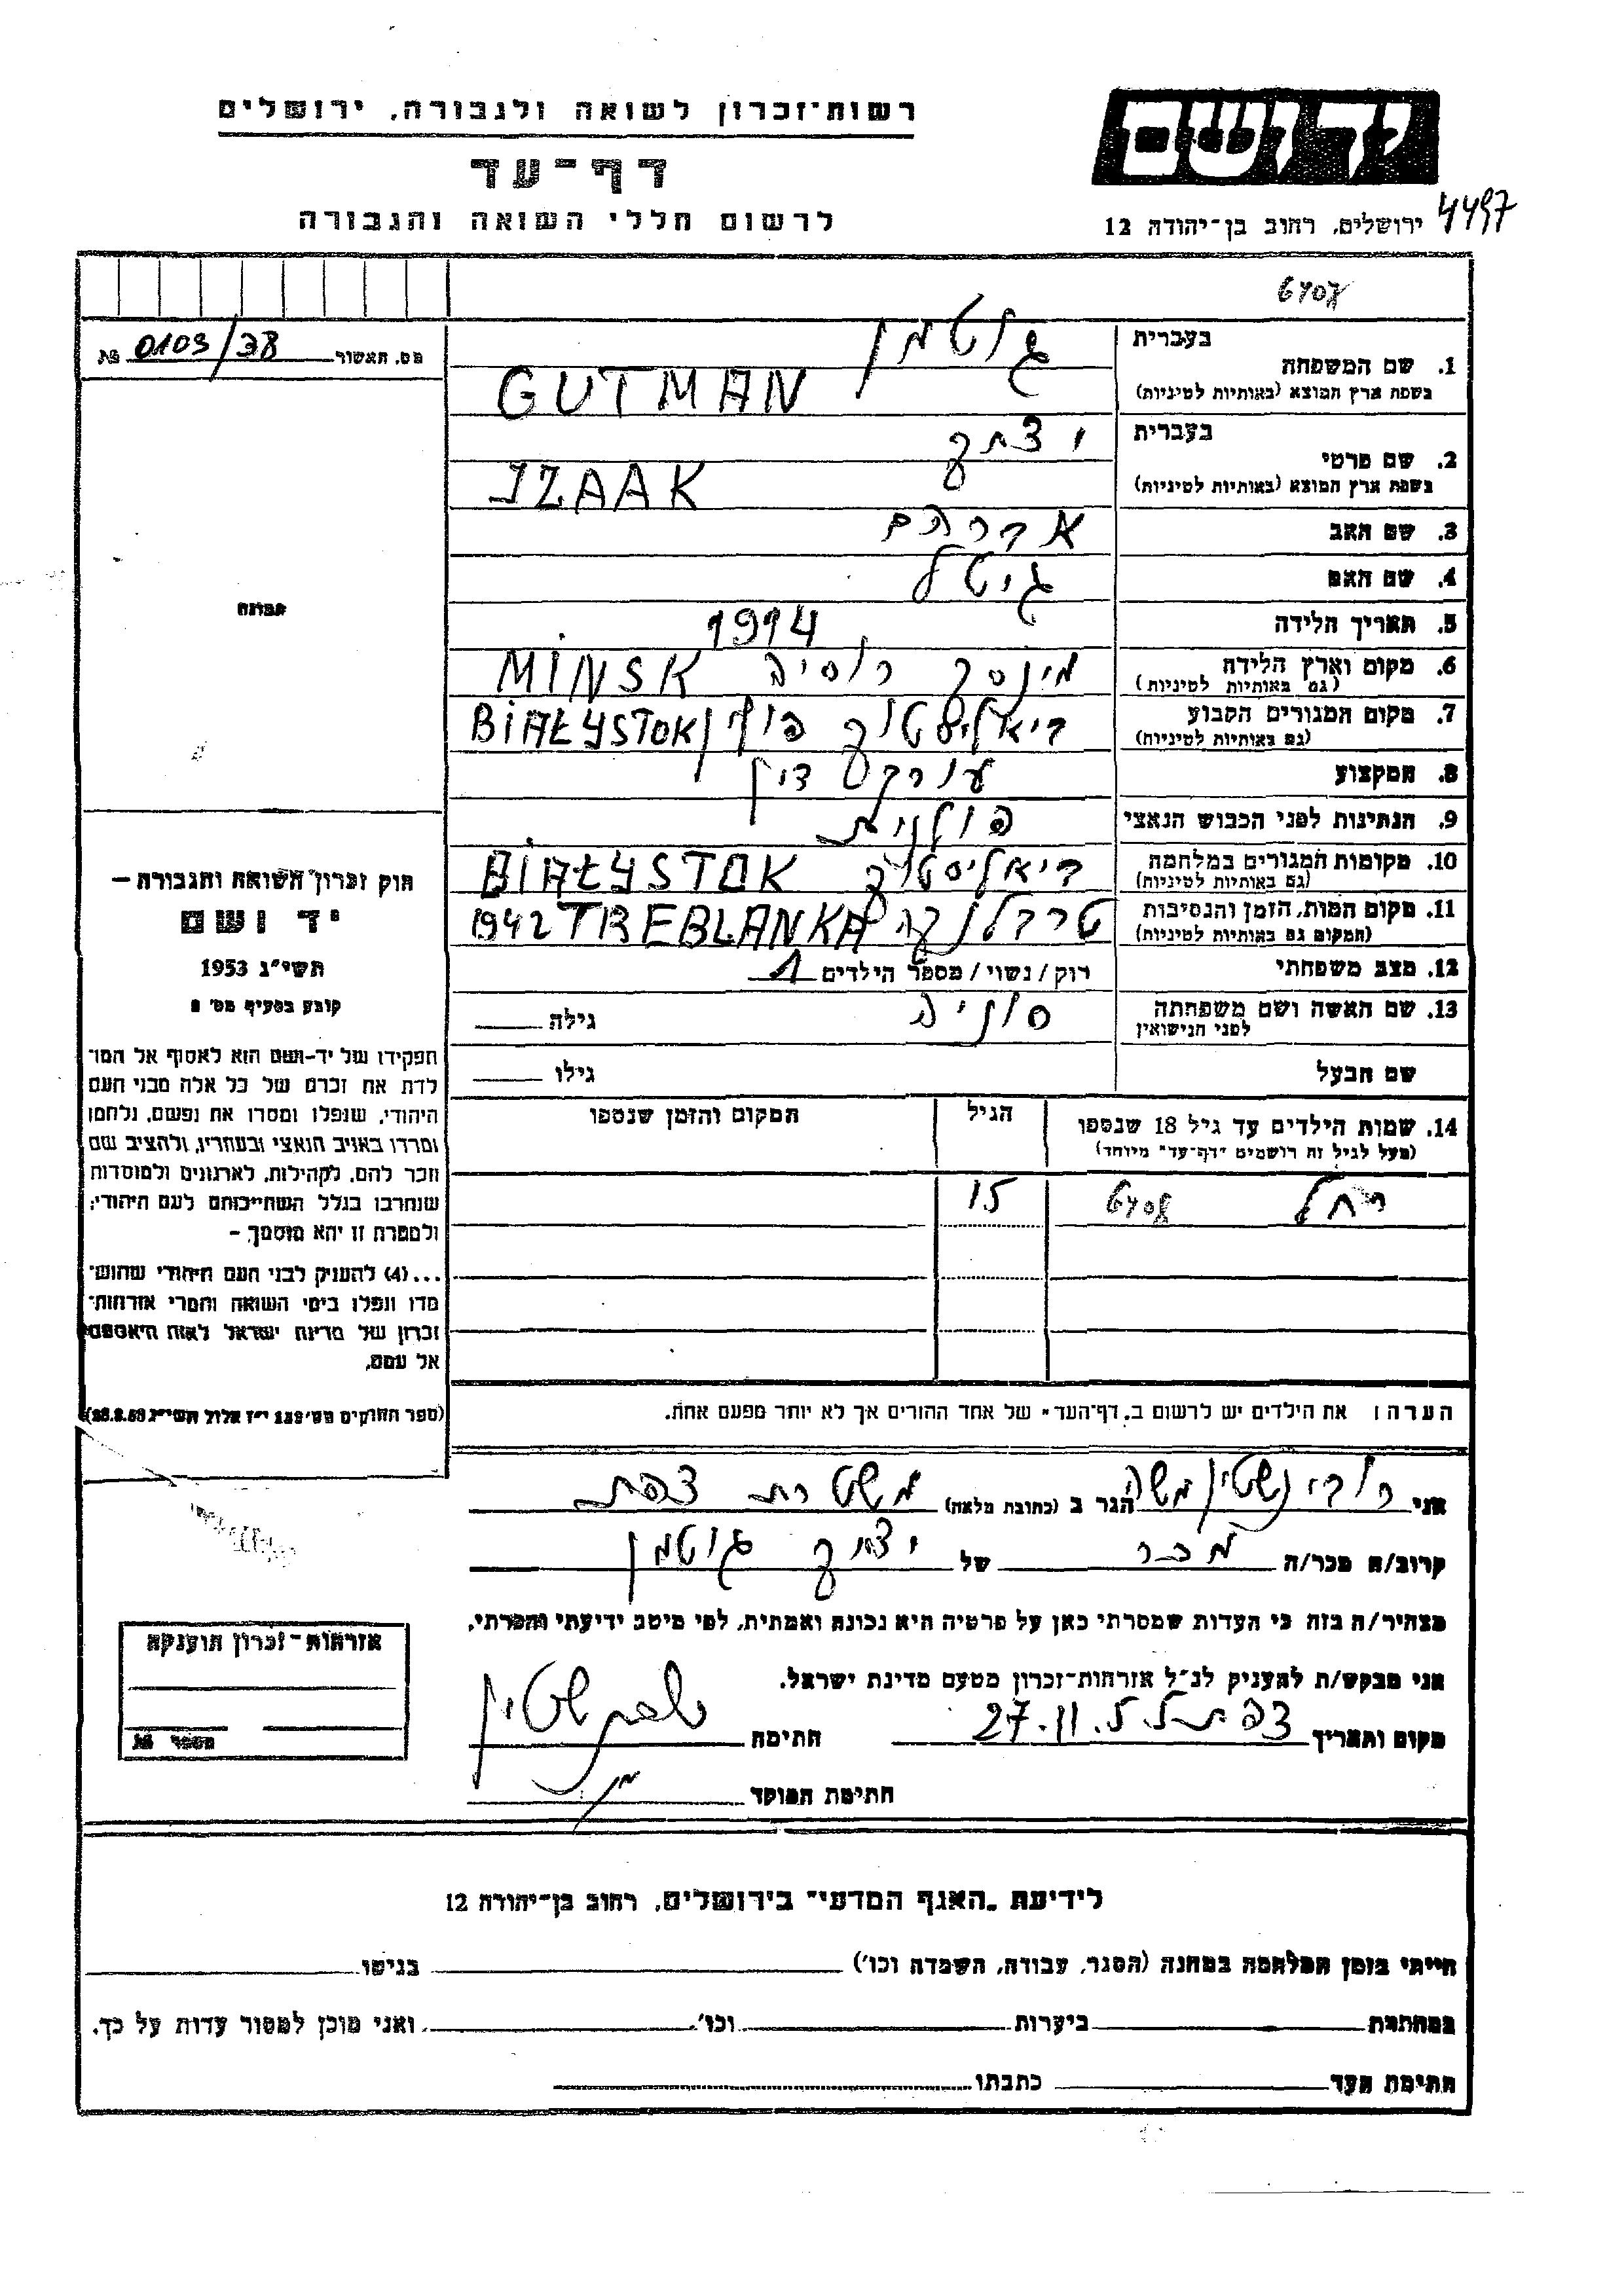 רשות-זכרון לשואה ולגבורה, ירושלים
יד ושם
דף-עד
לרשום חללי השואה והגבורה
ירושלים, רחוב בן-יהודה 12
4497
מס. תאשור 0103/38
בעברית גוטמן
1. שם המשפחה
בשפת ארץ המוצא (באותיות לטיניות) GUTMAN
בעברית יצחק
2. שם פרטי
בשפת ארץ המוצא (באותיות לטיניות) IZAAK
3. שם האב אברהם
4. שם האם גיטל
5. תאריך הלידה 1914
6. מקום וארץ הלידה מינסק רוסיה MINSK
(גם באותיות לטיניות)
7. מקום המגורים הקבוע ביאליסטוק פולין BIAŁYSTOK
(גם באותיות לטיניות)
8. המקצוע עורך דין
9. הנתינות לפני הכבוש הנאצי פולנית
10. מקומות המגורים במלחמה ביאליסטוק BIAŁYSTOK
(גם באותיות לטיניות)
11. מקום המות, הזמן והנסיבות טרבלנקה TREBLANKA 1942
(המקום גם באותיות לטיניות)
12. מצב משפחתי רוק/נשוי/מספר הילדים 1
13. שם האשה ושם משפחתה סוניה גילה
לפני הנישואין
שם הבעל גילו
14. שמות הילדים עד גיל 18 שנספו הגיל המקום והזמן שנספו
(מעל לגיל זה רושמים "דף-עד" מיוחד)
רחל 15
הערה: את הילדים יש לרשום ב"דף-העד" של אחד ההורים אך לא יותר מפעם אחת.
תמונה
חוק זכרון השואה והגבורה –
יד ושם
תשי"ג 1953
קובע בסעיף מס'
תפקידו של יד-ושם הוא לאסוף אל המו־
לדת את זכרם של כל אלה מבני העם
היהודי, שנפלו ומסרו את נפשם, נלחמו
ומרדו באויב הנאצי ובעוזריו, ולהציב שם
וזכר להם, לקהילות, לארגונים ולמוסדות
שנחרבו בגלל השתייכותם לעם היהודי;
ולמטרה זו יהא מוסמך –
...(4) להעניק לבני העם היהודי שהוש־
מדו ונפלו בימי השואה והמרי אזרחות־
זכרון של מדינת ישראל לאות היאספם
אל עמם.
(ספר החוקים מס' 132 י"ז אלול תשי"ג 28.8.53)
אני רובינשטין משה הגר ב (כתובת מלאה) משטרת צפת
קרוב/ה מכר/ה מכר של יצחק גוטמן
מצהיר/ה בזה כי העדות שמסרתי כאן על פרטיה היא נכונה ואמתית, לפי מיטב ידיעתי והכרתי.
אני מבקש/ת להעניק לנ"ל אזרחות-זכרון מטעם מדינת ישראל.
מקום ותאריך צפת 27.11. חתימה
חתימת המוסד
אזרחות-זכרון הוענקה
מספר
לידיעת "האגף המדעי" בירושלים, רחוב בן-יהודה 12
הייתי בזמן המלחמה במחנה (הסגר, עבודה, השמדה וכו') בגיטו
במחתרת ביערות וכו'. ואני מוכן למסור עדות על כך.
חתימת העד כתבתו